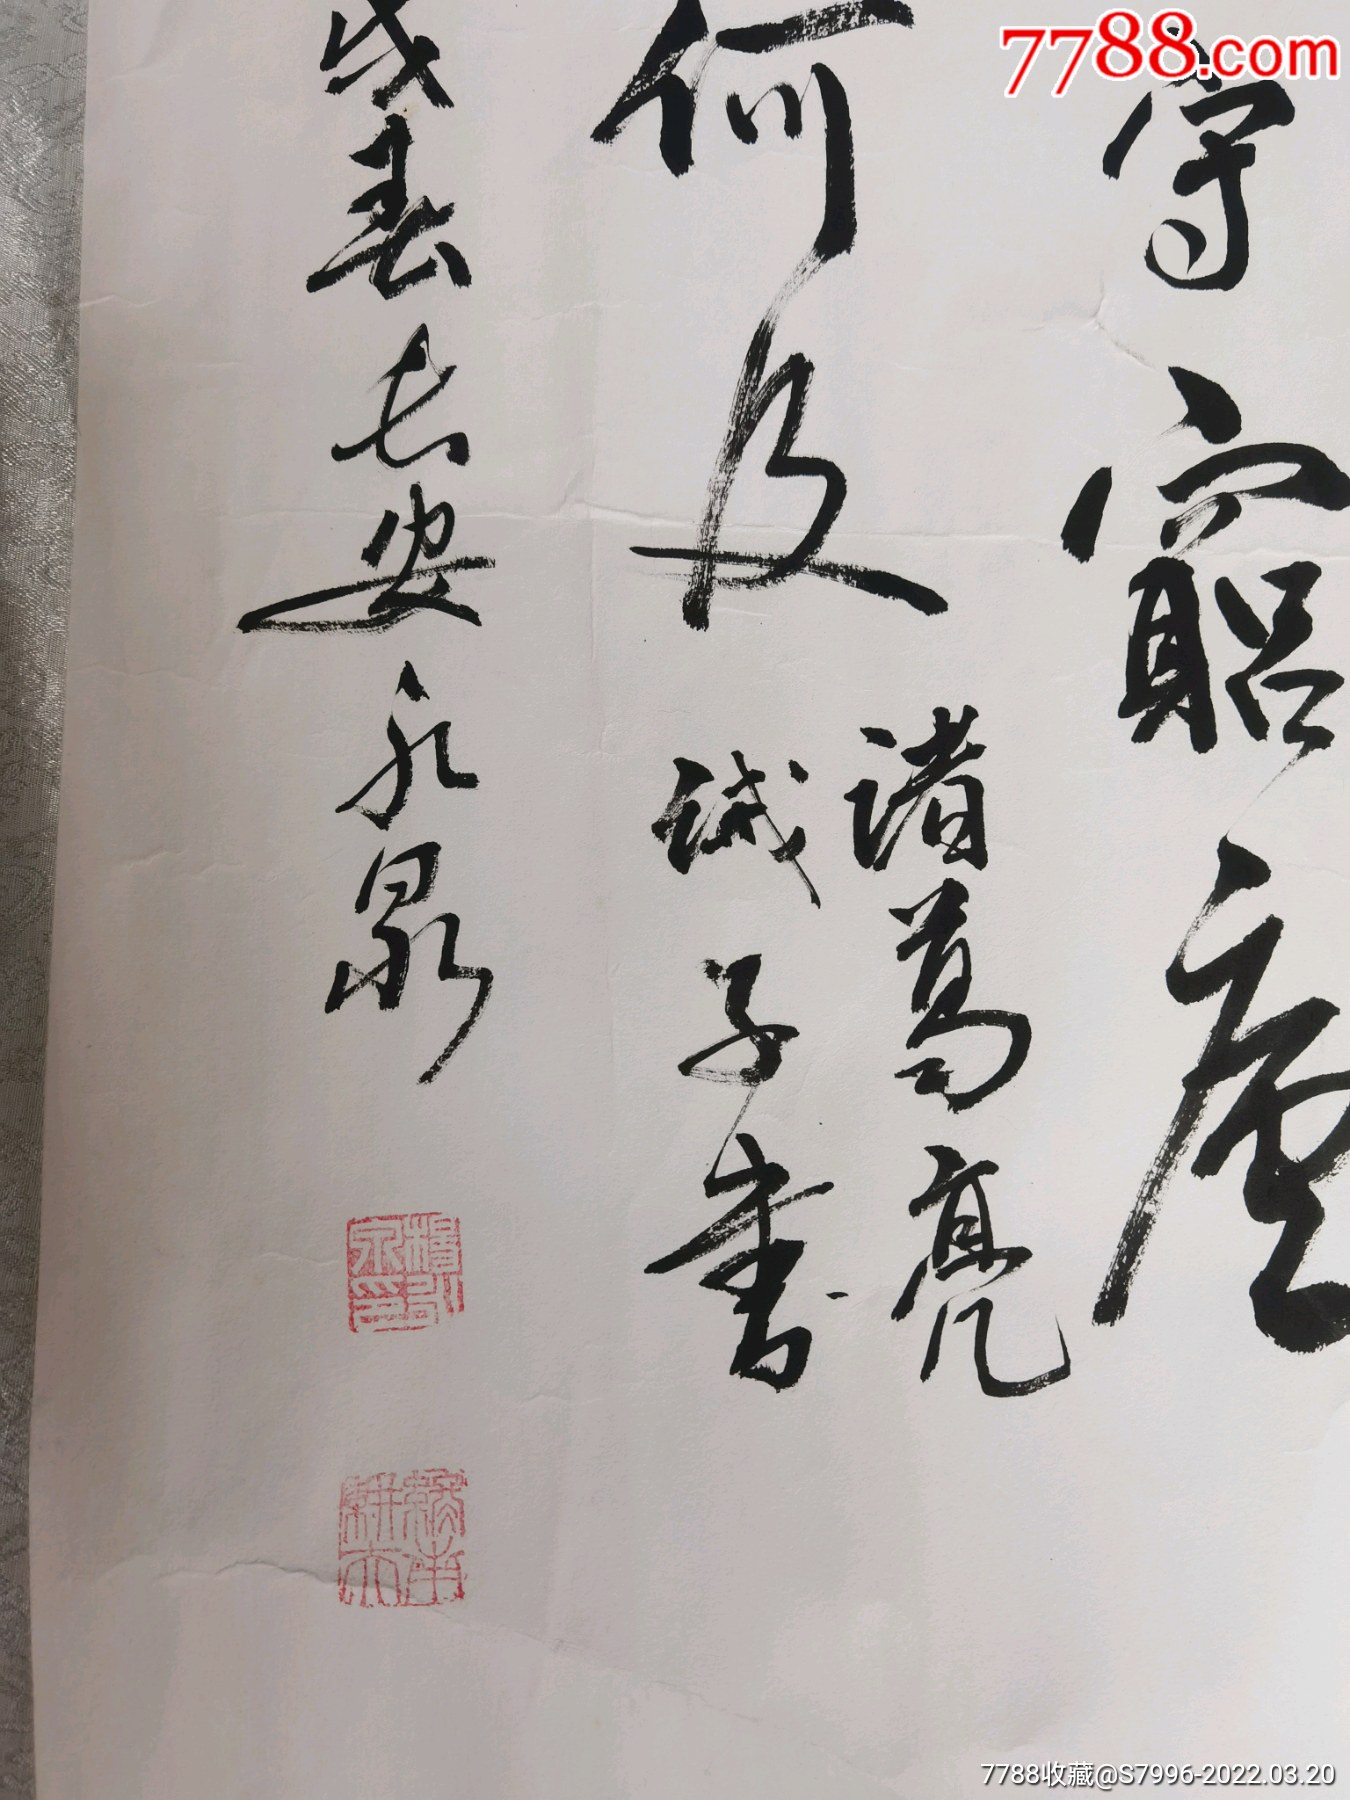 7788.com
守窮廬
何及
諸葛亮
誡子書
戌春長安永泉
7788收藏@S7996-2022.03.20